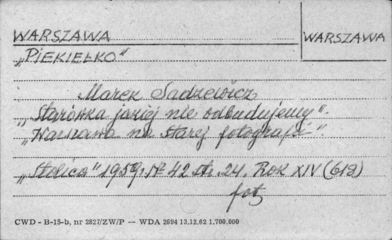 WARSZAWA WARSZAWA
„PIEKIEŁKO"
Marek Sadzewicz
„Starówka jakiej nie odbudujemy".
„Warszawa na starej fotografii".
„Stolica" 1959 r. № 42 str. 24. Rok XIV (618)
fot.
CWD - B-15-b, nr 2827/ZW/P — WDA 2694 13.12.62 1.700.000